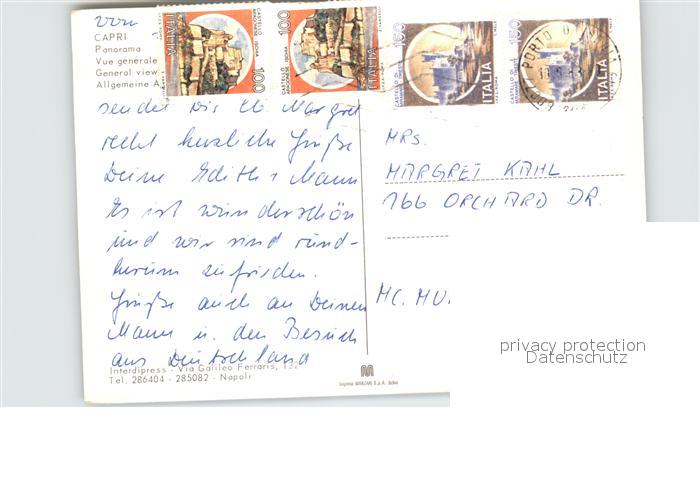 von
CAPRI
Panorama
Vue générale
General view
Allgemeine A
sendet Dir lb. Margret
recht herzliche Grüße
Deine Edith + Mann
Es ist wunderschön
und wir sind rund-
herum zufrieden.
Grüße auch an Deinen
Mann u. den Besuch
aus Deutschland
Interdipress - Via Galileo Ferraris, 132
Tel. 286404 - 285082 - Napoli
ITALIA
100
CASTELLO ARAGONESE ISCHIA
100
CASTELLO ARAGONESE ISCHIA
ITALIA
150
CASTELLO DI
ITALIA
150
CASTELLO DI
ITALIA
PORTO
MRS.
MARGRET KAHL
166 ORCHARD DR.
MC. MU
privacy protection
Datenschutz